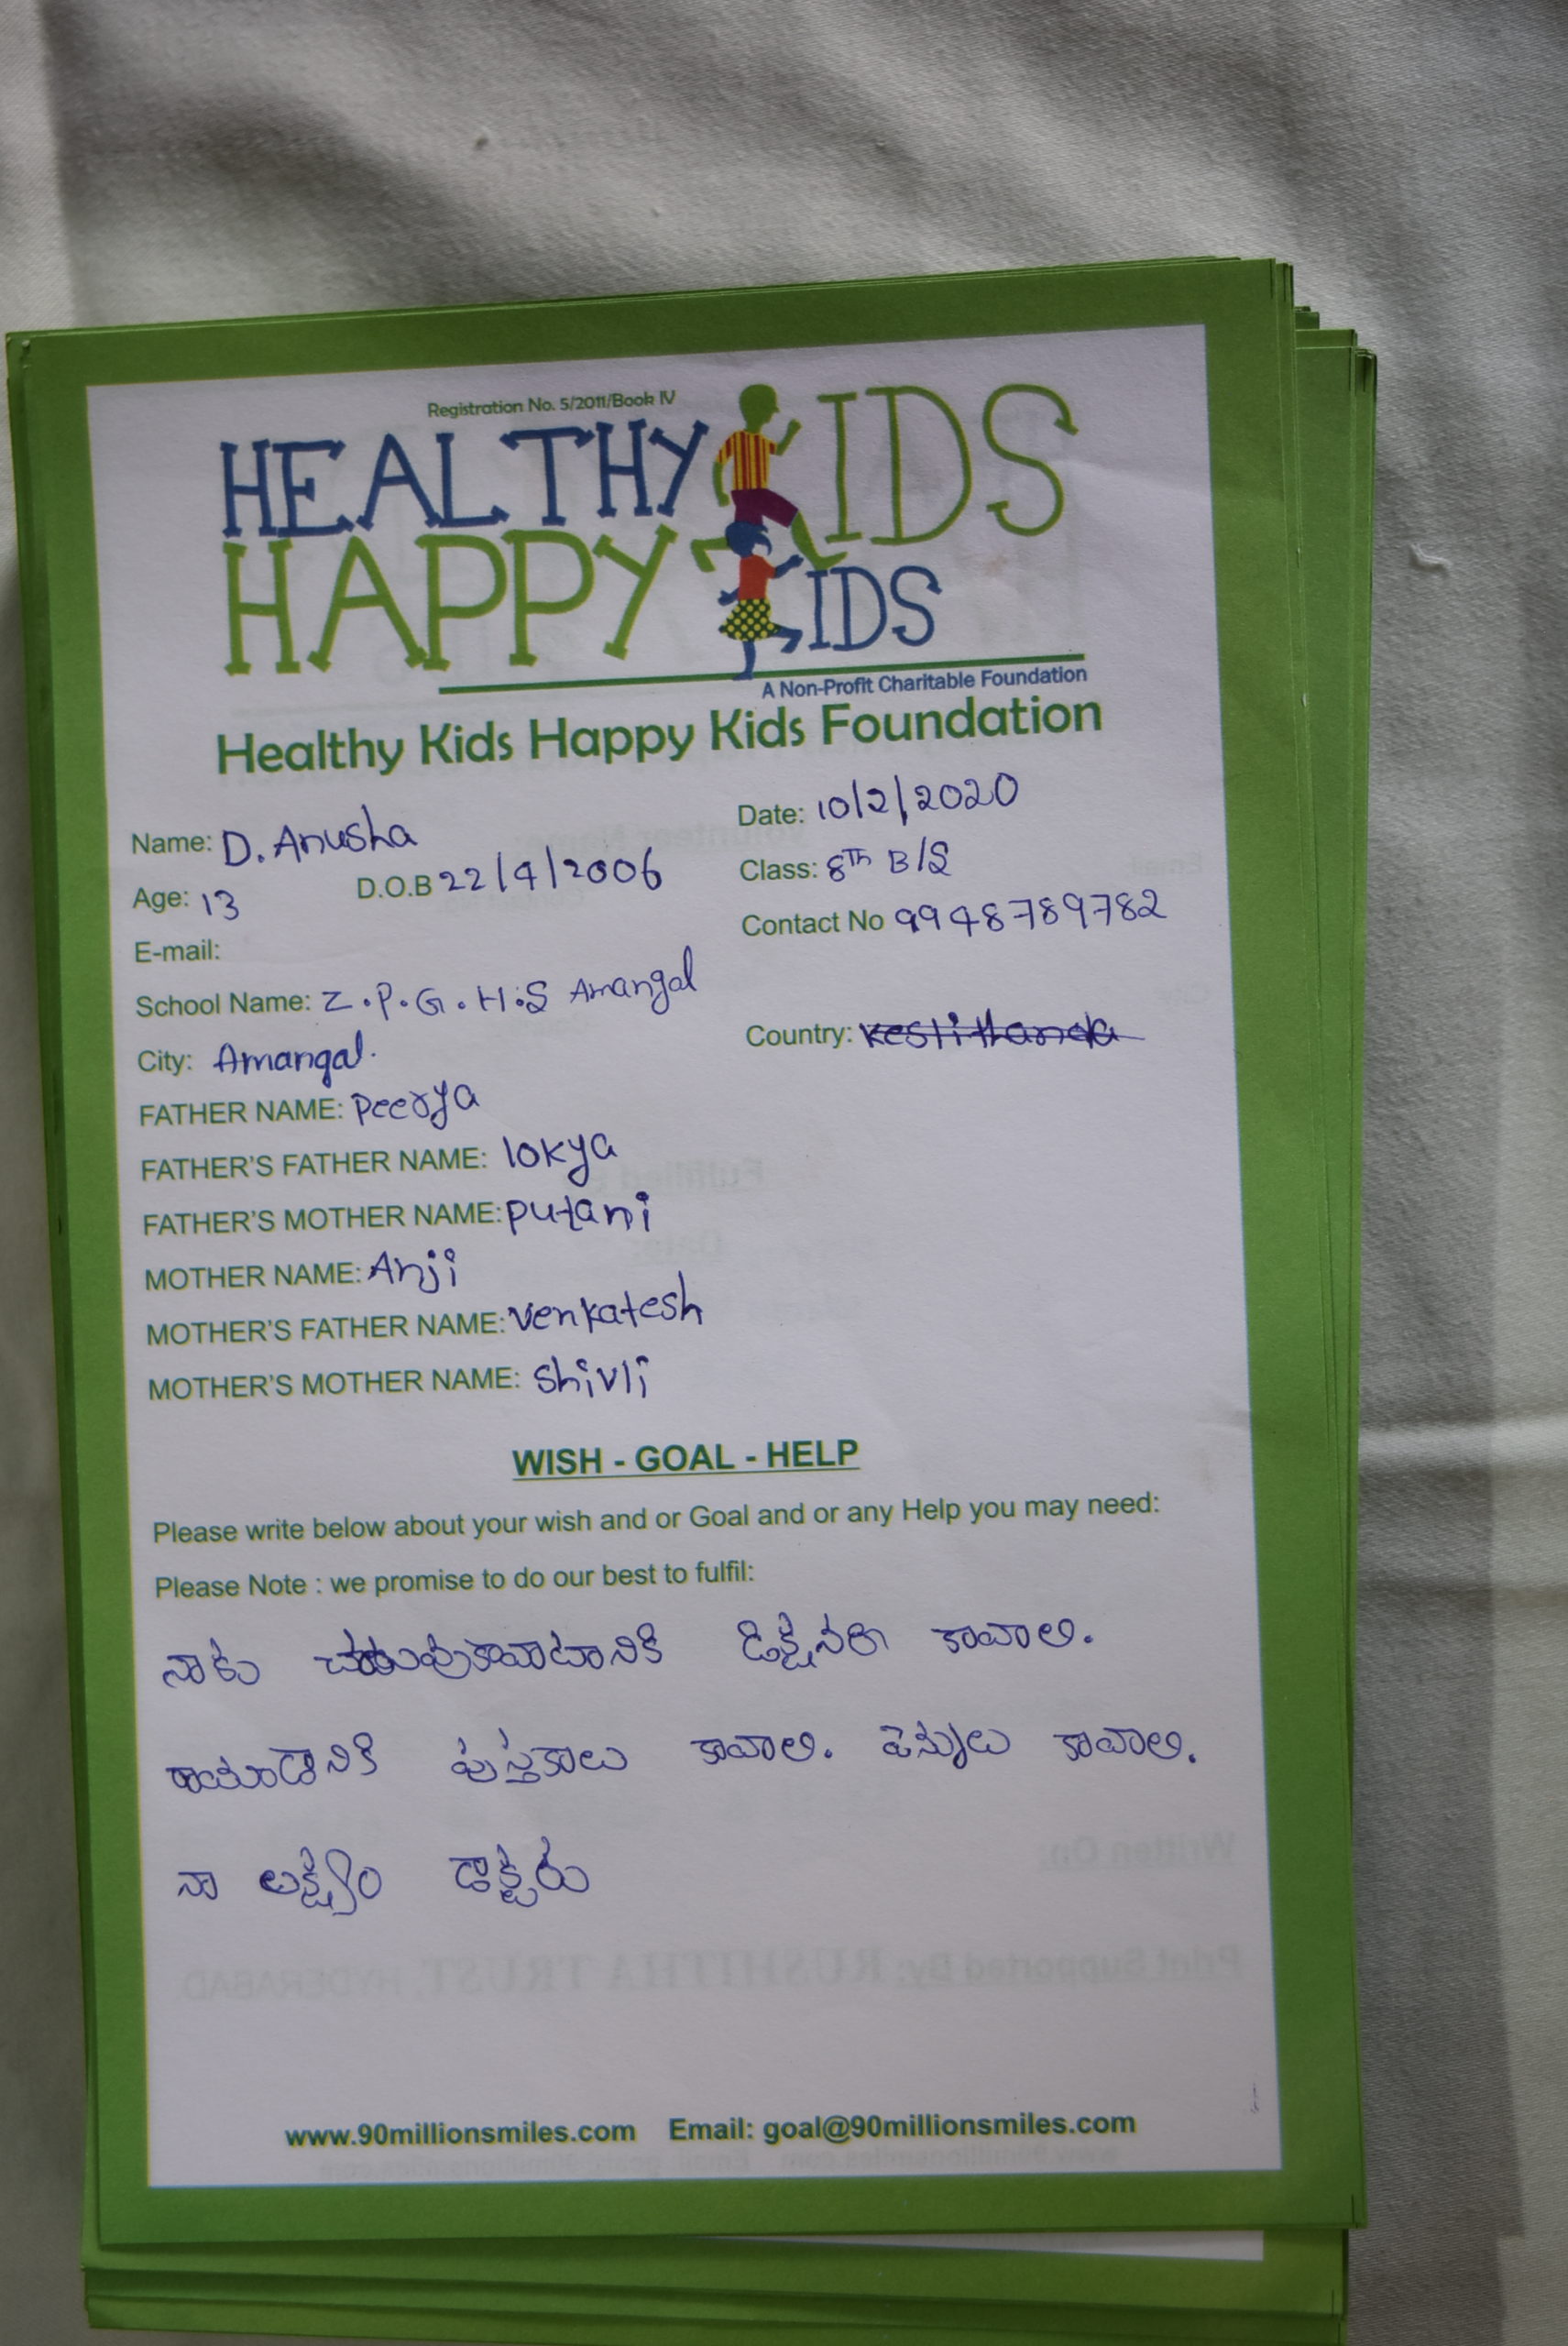 Registration No. 5/2011/Book IV
HEALTHY KIDS
HAPPY KIDS
A Non-Profit Charitable Foundation
Healthy Kids Happy Kids Foundation
Name: D. Anusha
Date: 10/2/2020
Age: 13 D.O.B 22/4/2006
Class: 8Th B/S
E-mail:
Contact No 9948789782
School Name: Z.P.G.H.S Amangal
City: Amangal.
Country:
FATHER NAME: Peerya
FATHER'S FATHER NAME: lokya
FATHER'S MOTHER NAME: putani
MOTHER NAME: Anji
MOTHER'S FATHER NAME: venkatesh
MOTHER'S MOTHER NAME: shivli
WISH - GOAL - HELP
Please write below about your wish and or Goal and or any Help you may need:
Please Note : we promise to do our best to fulfil:
నాకు డిక్షనరి కావాలి.
రాయడానికి పుస్తకాలు కావాలి. పెన్నులు కావాలి.
నా లక్ష్యం డాక్టరు
www.90millionsmiles.com Email: goal@90millionsmiles.com